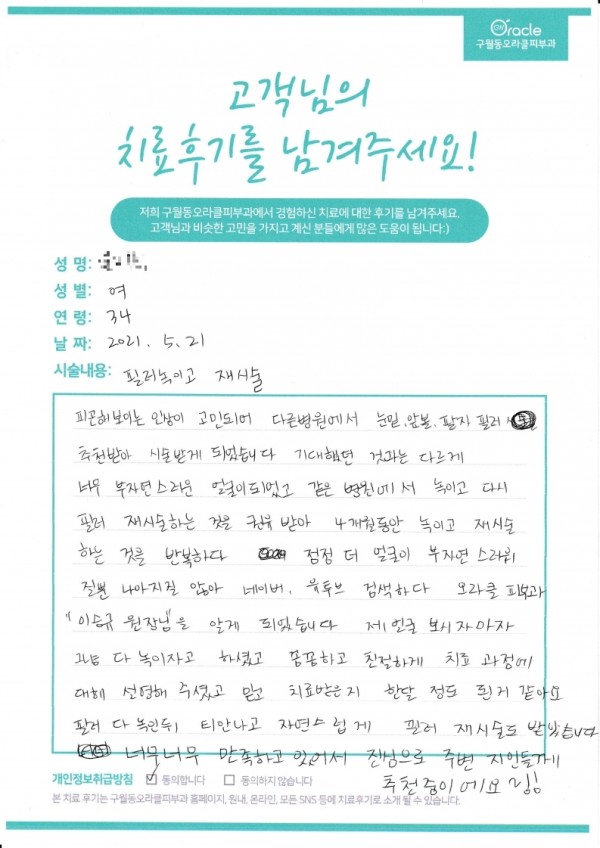 GW
Oracle
구월동오라클피부과
고객님의
치료후기를 남겨주세요!
저희 구월동오라클피부과에서 경험하신 치료에 대한 후기를 남겨주세요.
고객님과 비슷한 고민을 가지고 계신 분들에게 많은 도움이 됩니다:)
성 명:
성 별: 여
연 령: 34
날 짜: 2021. 5. 21
시술내용: 필러녹이고 재시술
피곤해보이는 인상이 고민되어 다른병원에서 눈밑, 앞볼, 팔자 필러
추천받아 시술받게 되었습니다 기대했던 것과는 다르게
너무 부자연스러운 얼굴이되었고 같은 병원에서 녹이고 다시
필러 재시술하는 것을 권유 받아 4개월동안 녹이고 재시술
하는 것을 반복하다 점점 더 얼굴이 부자연스러워
질뿐 나아지질 않아 네이버, 유튜브 검색하다 오라클 피부과
"이승규 원장님"을 알게 되었습니다 제 얼굴 보시자마자
그냥 다 녹이자고 하셨고 꼼꼼하고 친절하게 치료 과정에
대해 설명해 주셨고 믿고 치료받은지 한달 정도 된거 같아요
필러 다 녹인뒤 티안나고 자연스럽게 필러 재시술도 받았습니다
너무너무 만족하고 있어서 진심으로 주변 지인들께
추천중이에요
개인정보취급방침 ☑ 동의합니다 ☐ 동의하지 않습니다
본 치료 후기는 구월동오라클피부과 홈페이지, 원내, 온라인, 모든 SNS 등에 치료후기로 소개 될 수 있습니다.